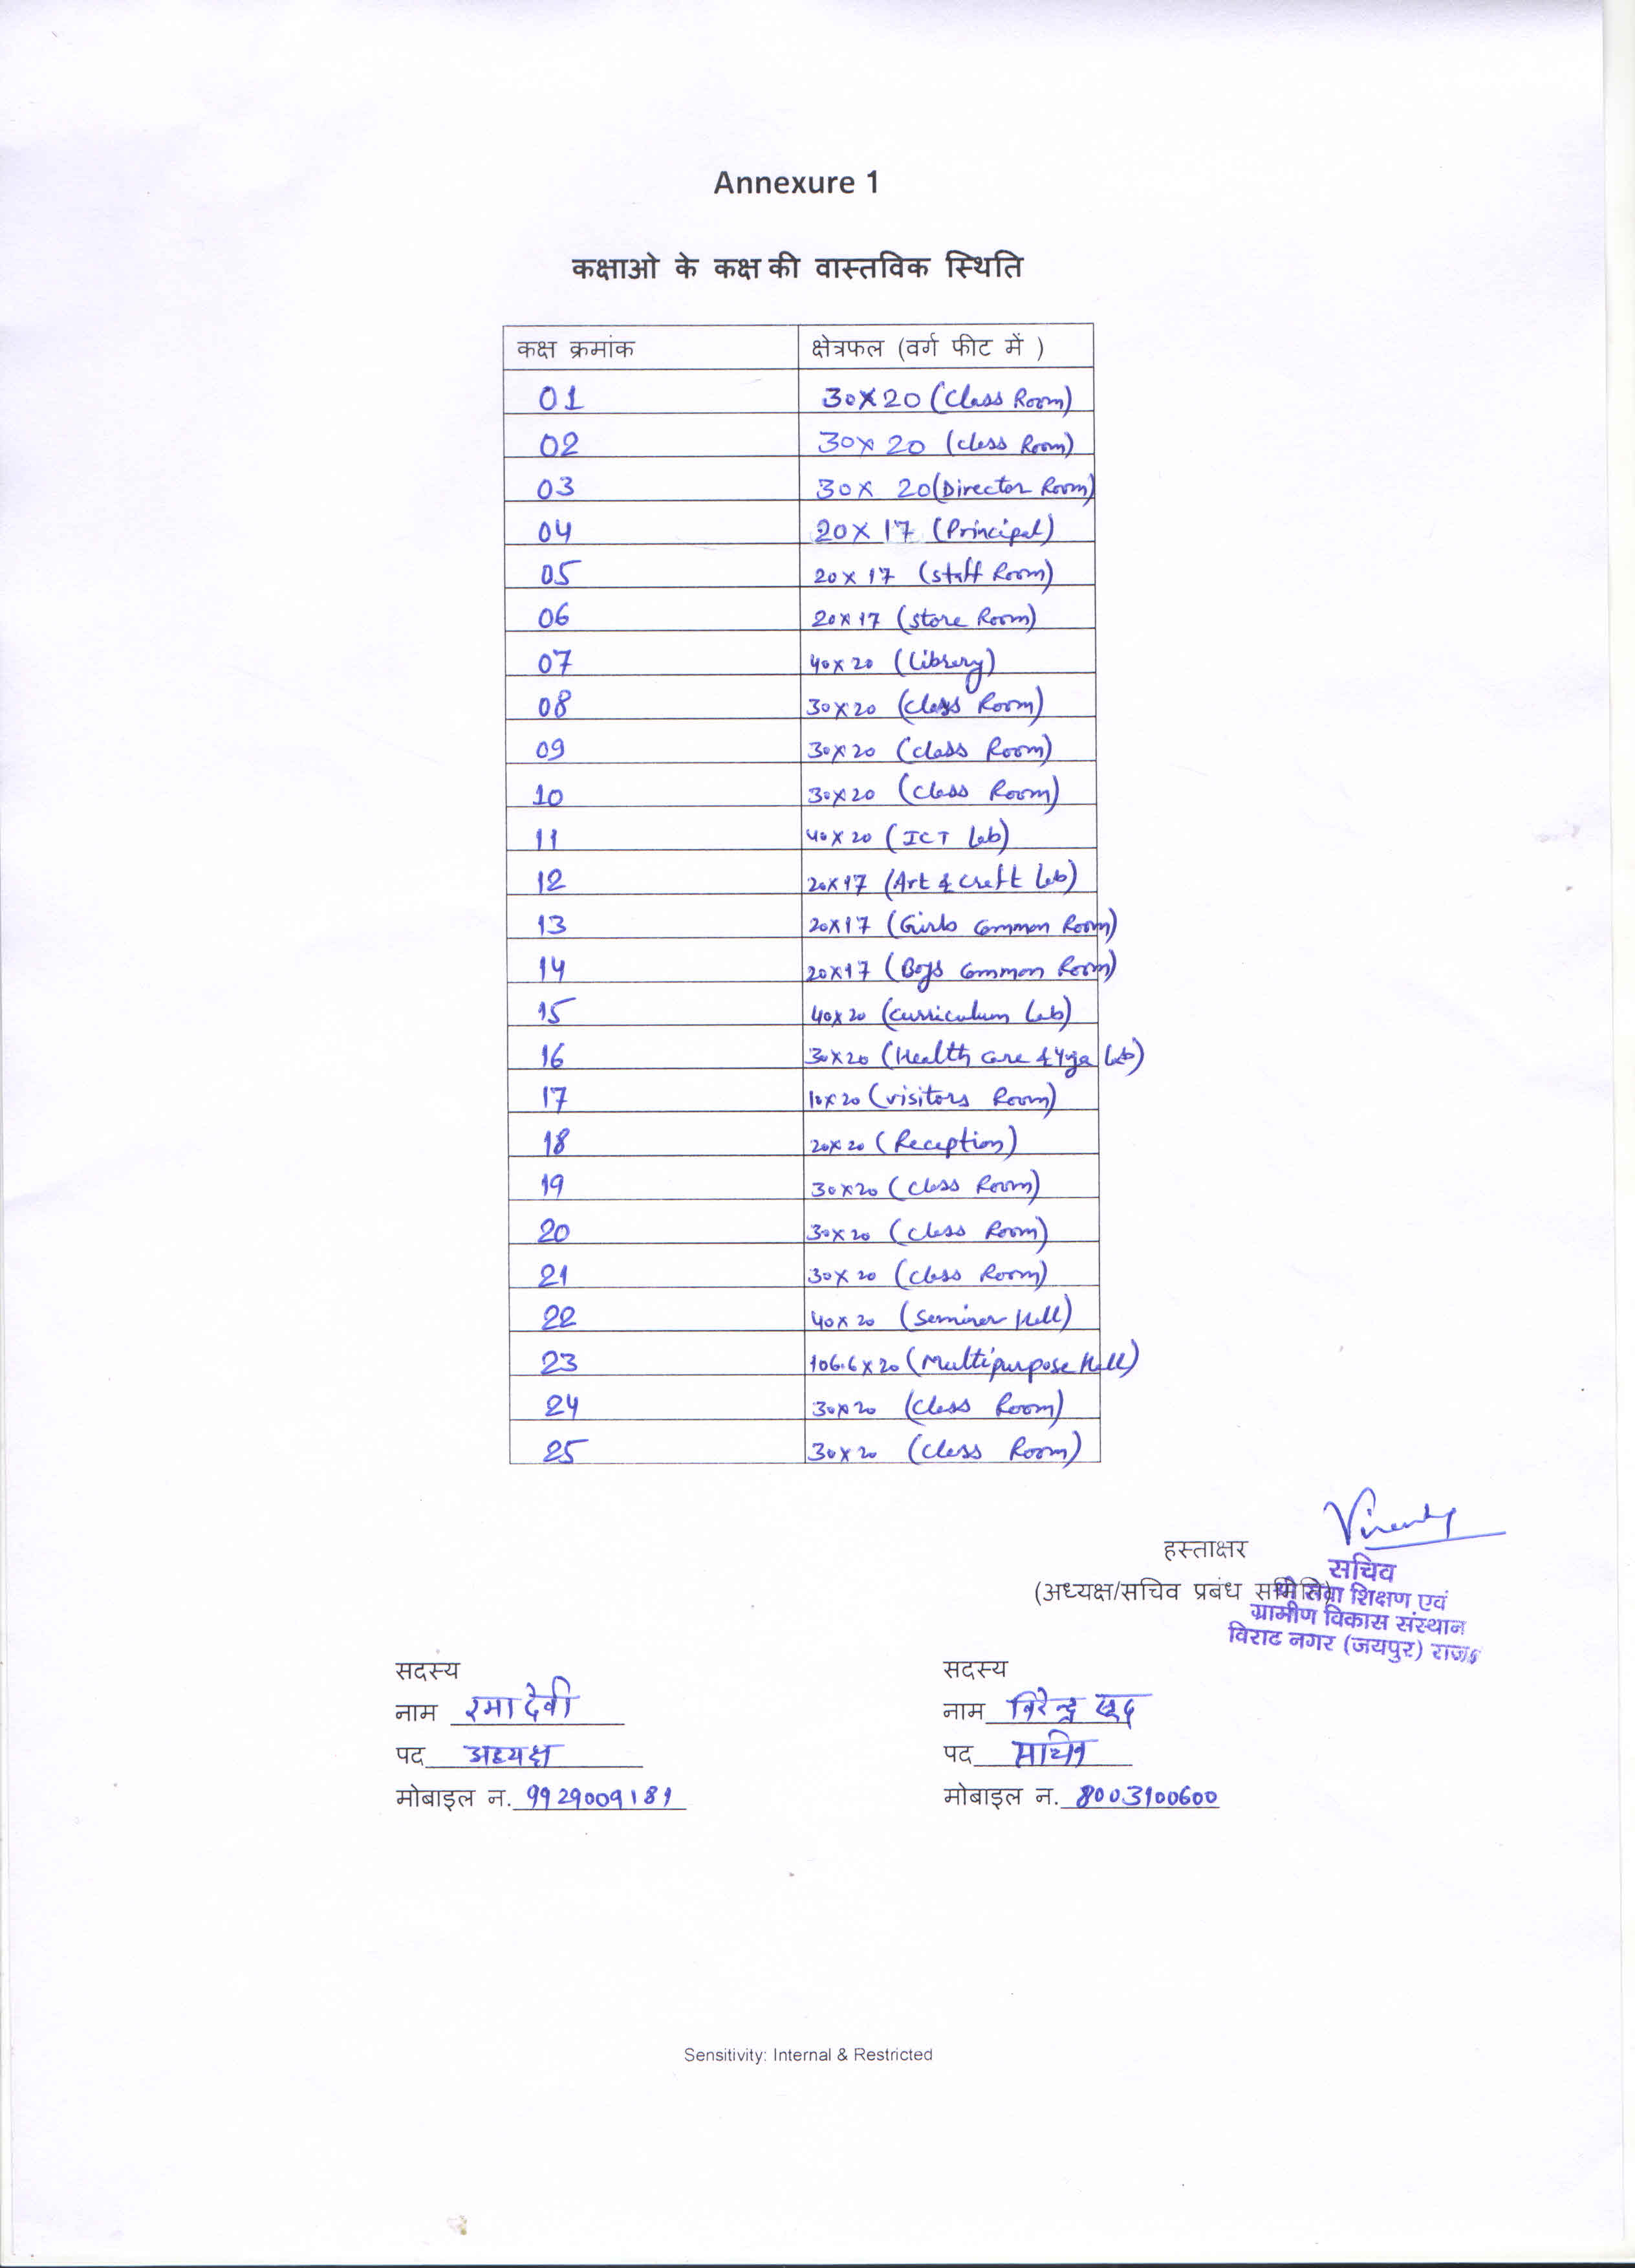 Annexure 1
कक्षाओ के कक्ष की वास्तविक स्थिति
कक्ष क्रमांक क्षेत्रफल (वर्ग फीट में )
01 30X20 (Class Room)
02 30X 20 (Class Room)
03 30X 20(Director Room)
04 20X 17 (Principal)
05 20X 17 (Staff Room)
06 20X17 (Store Room)
07 40X20 (Library)
08 30X20 (Class Room)
09 30X20 (Class Room)
10 30X20 (Class Room)
11 40X20 (ICT Lab)
12 20X17 (Art & Craft Lab)
13 20X17 (Girls Common Room)
14 20X17 (Boys Common Room)
15 40X20 (Curriculum Lab)
16 30X20 (Health Care & Yoga Lab)
17 10X20 (Visitors Room)
18 20X20 (Reception)
19 30X20 (Class Room)
20 30X20 (Class Room)
21 30X20 (Class Room)
22 40X20 (Seminar Hall)
23 106.6X20 (Multipurpose Hall)
24 30X20 (Class Room)
25 30X20 (Class Room)
हस्ताक्षर
सचिव
(अध्यक्ष/सचिव प्रबंध समिति)
सेवा शिक्षण एवं
ग्रामीण विकास संस्थान
विराट नगर (जयपुर) राज०
सदस्य सदस्य
नाम रमा देवी नाम विरेन्द्र
पद अध्यक्ष पद सचिव
मोबाइल न. 9929009181 मोबाइल न. 8003100600
Sensitivity: Internal & Restricted